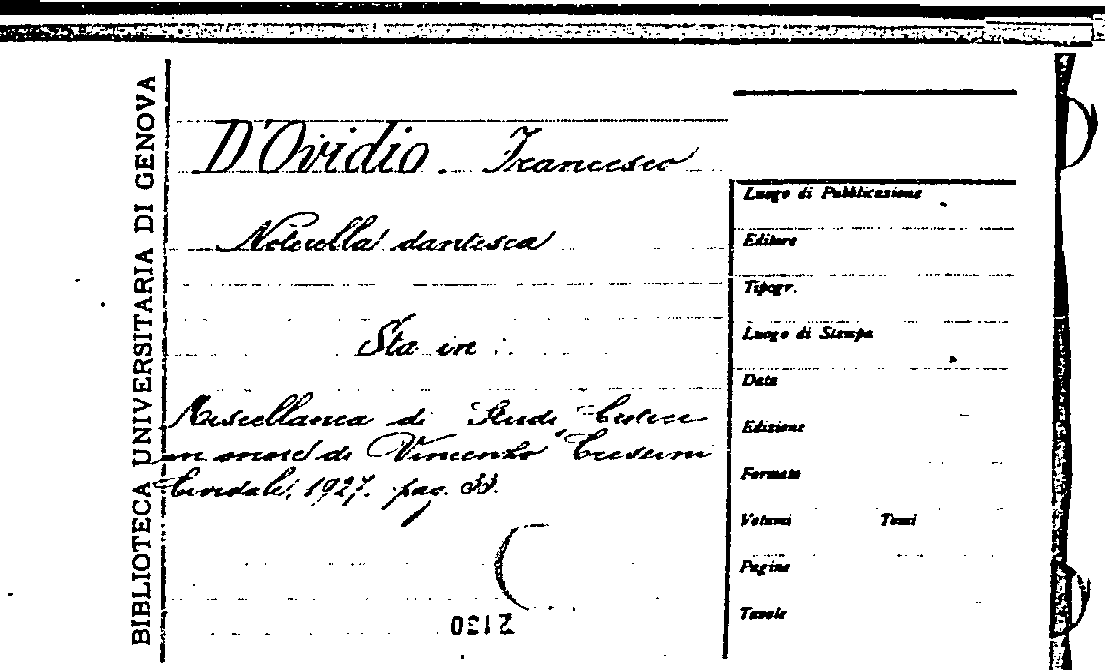 BIBLIOTECA UNIVERSITARIA DI GENOVA
D'Ovidio. Francesco
Noterella dantesca
Sta in:
Miscellanea di Studi Critici
in onore di Vincenzo Crescini
Cividale, 1927. pag. 33.
2130
Luogo di Pubblicazione
Editore
Tipogr.
Luogo di Stampa
Data
Edizione
Formato
Volumi Tomi
Pagine
Tavole